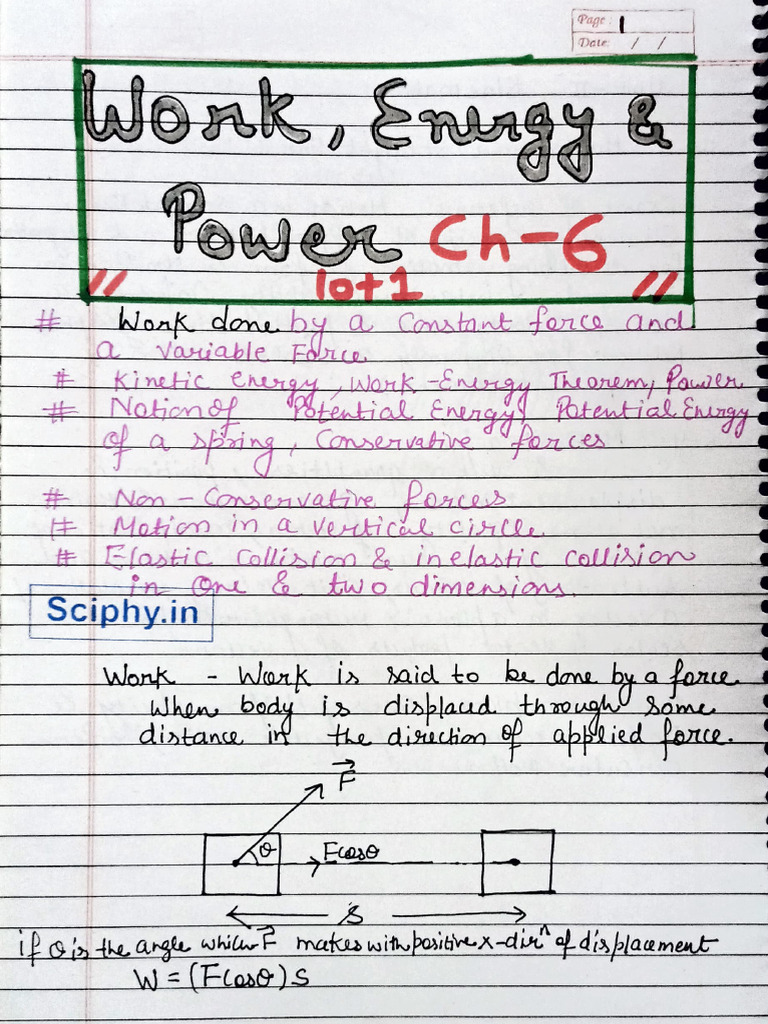 Page: 1
Date: / /
Work, Energy &
Power Ch-6
10+1
# Work done by a Constant force and
a variable Force.
# Kinetic energy, Work-Energy Theorem, Power
# Notion of Potential Energy, Potential Energy
of a spring, Conservative forces
# Non-Conservative forces
# Motion in a vertical circle.
# Elastic collision & inelastic collision
in One & two dimensions.
Sciphy.in
Work - Work is said to be done by a force
when body is displaced through some
distance in the direction of applied force.
F
θ Fcosθ
S
if θ is the angle which F makes with positive x-dirⁿ of displacement
W = (Fcosθ)S